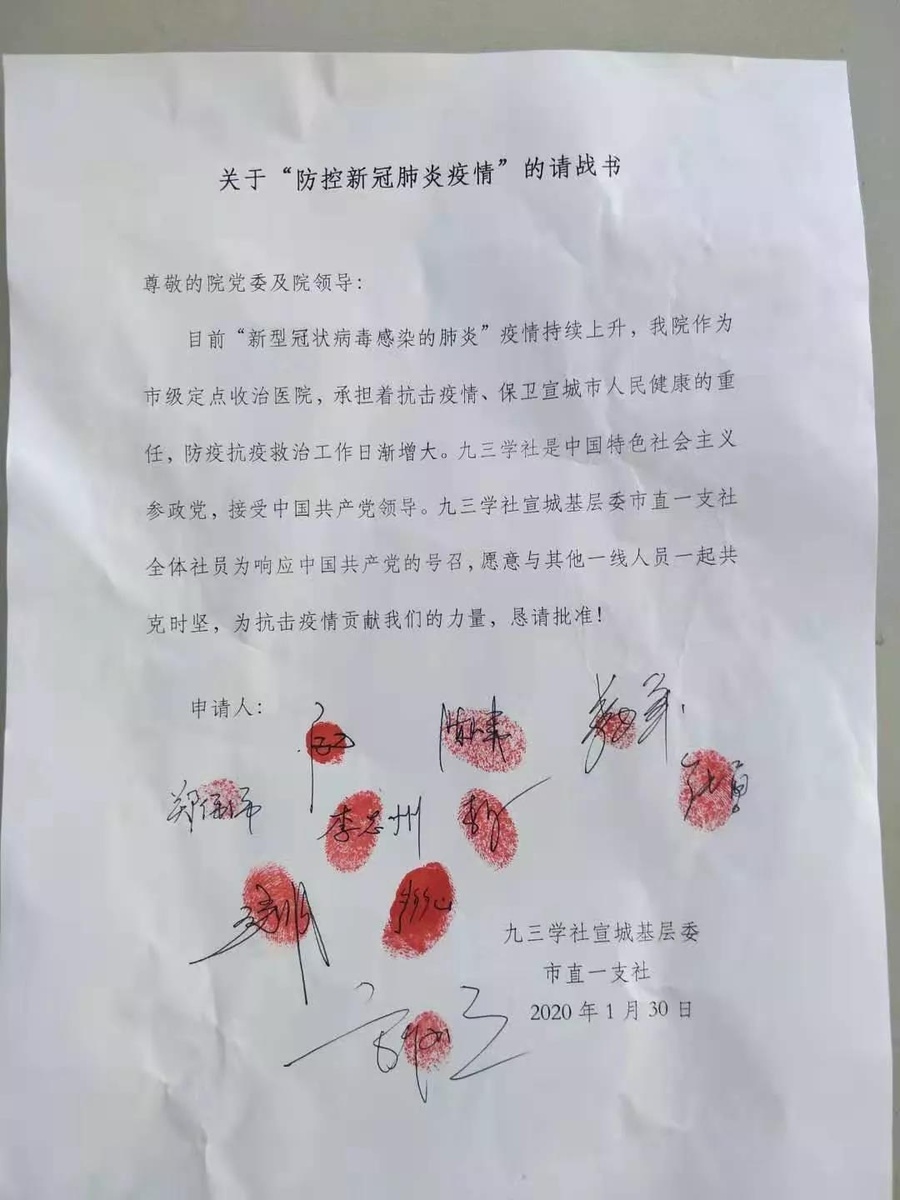 关于“防控新冠肺炎疫情”的请战书
尊敬的院党委及院领导：
目前“新型冠状病毒感染的肺炎”疫情持续上升，我院作为
市级定点收治医院，承担着抗击疫情、保卫宣城市人民健康的重
任，防疫抗疫救治工作日渐增大。九三学社是中国特色社会主义
参政党，接受中国共产党领导。九三学社宣城基层委市直一支社
全体社员为响应中国共产党的号召，愿意与其他一线人员一起共
克时坚，为抗击疫情贡献我们的力量，恳请批准！
申请人：
李志州
九三学社宣城基层委
市直一支社
2020 年 1 月 30 日